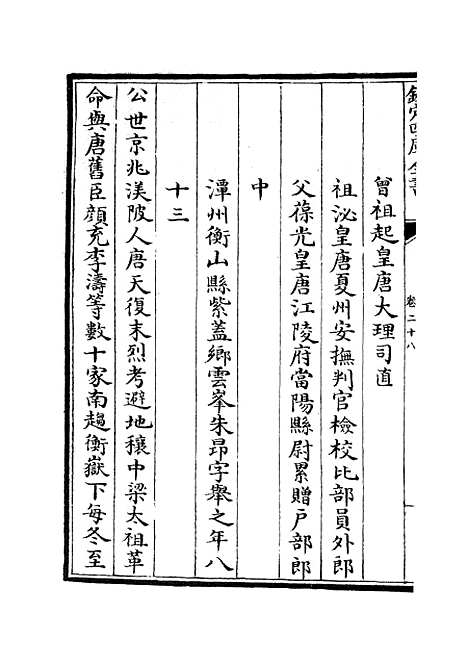 欽定四庫全書
卷二十八
曾祖起皇唐大理司直
祖泌皇唐夏州安撫判官檢校比部員外郎
父葆光皇唐江陵府當陽縣尉累贈戶部郎
中
潭州衡山縣紫蓋鄉雲峯朱昂字舉之年八
十三
公世京兆渼陂人唐天復末烈考避地穰中梁太祖革
命與唐舊臣顔充李濤等數十家南趨衡嶽下每冬至